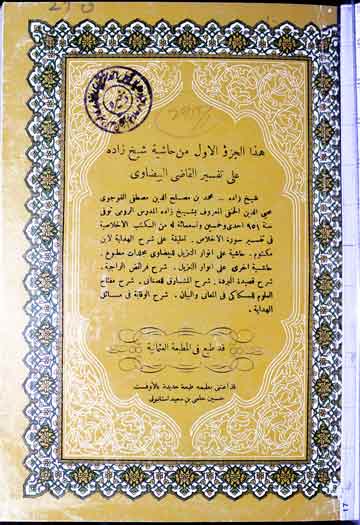 هذا الجزؤ الاول من حاشية شيخ زاده
على تفسير القاضى البيضاوى
شيخ زاده _ محمد بن مصلح الدين مصطفى القوجوى
محيى الدين الحنفى المعروف بشيخ زاده المدرس الرومى توفى
سنة ٩٥١ احدى وخمسين وتسعمائة له من الكتب الاخلاصية
فى تفسير سورة الاخلاص . تعليقة على شرح الهداية لابن
مكتوم . حاشية على انوار التنزيل للبيضاوى مجلدات مطبوع .
حاشية اخرى على انوار التنزيل . شرح فرائض السراجية .
شرح قصيدة البردة . شرح المشارق للصغانى . شرح مفتاح
العلوم للسكاكى فى المعانى والبيان . شرح الوقاية فى مسائل
الهداية .
قد طبع فى المطبعة العثمانية
قد اعتنى بطبعه طبعة جديدة بالاوفست
حسين حلمى بن سعيد استانبولى
17